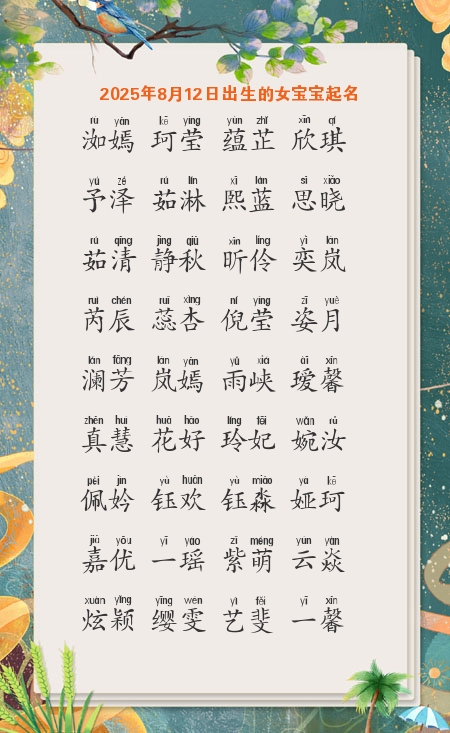 2025年8月12日出生的女宝宝起名
rù yān kē yíng yùn zhǐ xīn qí
洳嫣 珂莹 蕴芷 欣琪
yú zé rú lín xī lán sī xiǎo
予泽 茹淋 熙蓝 思晓
rú qīng jìng qiū xīn líng yì lán
茹清 静秋 昕伶 奕岚
ruì chén ruǐ xìng ní yíng zī yuè
芮辰 蕊杏 倪莹 姿月
lán fāng lán yān yǔ xiá ài xīn
澜芳 岚嫣 雨峡 瑷馨
zhēn huì huā hǎo líng fēi wǎn rǔ
真慧 花好 玲妃 婉汝
pèi jìn yù huān yù miǎo yà kē
佩妗 钰欢 钰淼 娅珂
jiā yōu yī yáo zǐ méng yún yàn
嘉优 一瑶 紫萌 云焱
xuàn yǐng yīng wén yì fěi yī xīn
炫颖 缨雯 艺斐 一馨